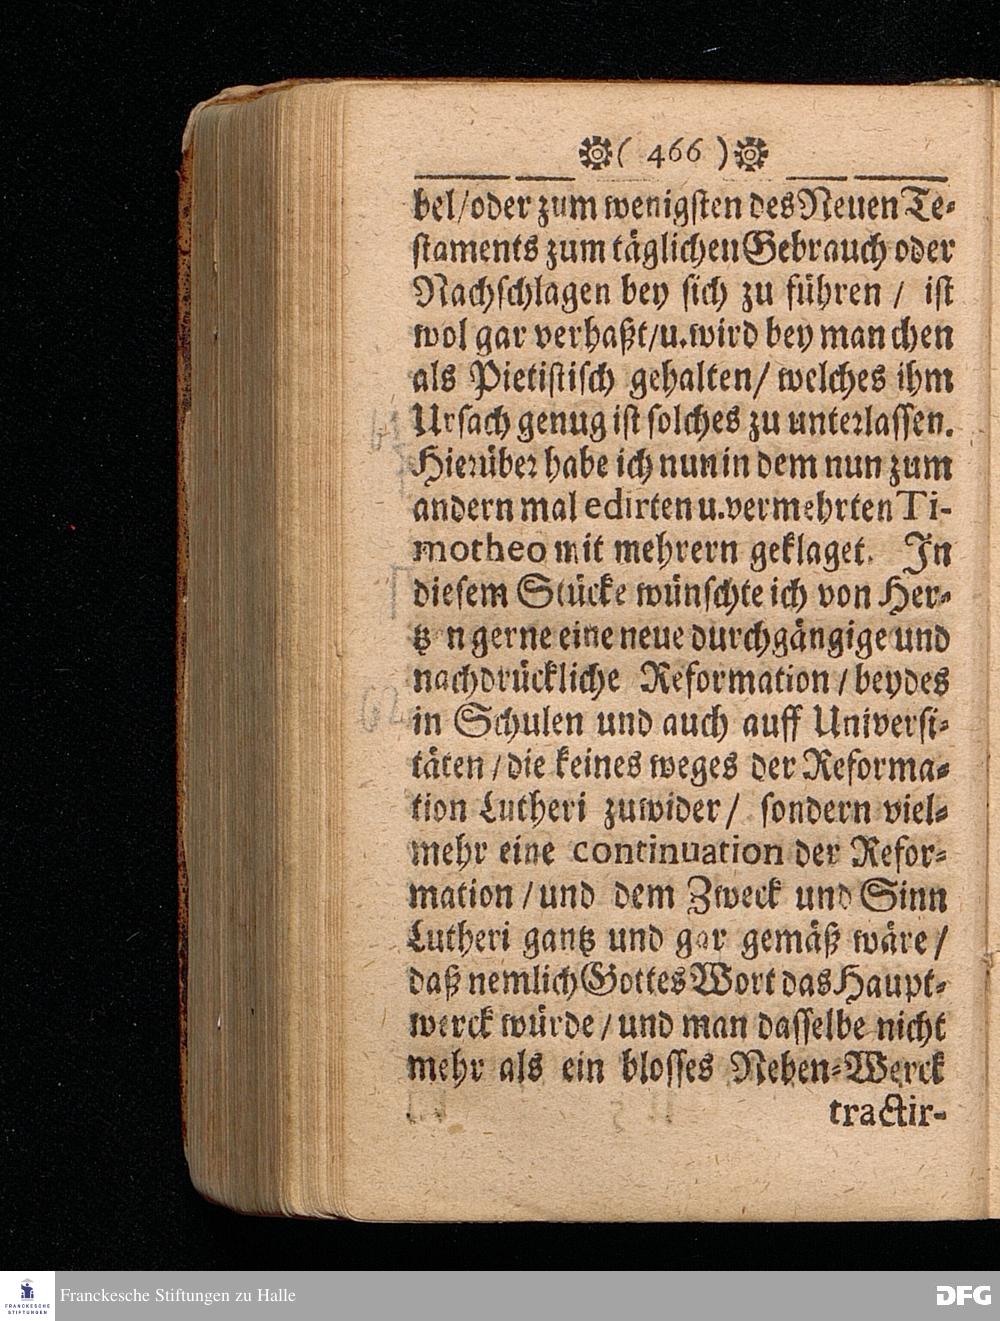 ( 466 )
bel/oder zum wenigsten des Neuen Te-
staments zum täglichen Gebrauch oder
Nachschlagen bey sich zu führen / ist
wol gar verhaßt/u.wird bey manchen
als Pietistisch gehalten/ welches ihm
Ursach genug ist solches zu unterlassen.
Hierüber habe ich nun in dem nun zum
andern mal edirten u.vermehrten Ti-
motheo mit mehrern geklaget. In
diesem Stücke wünschte ich von Her-
tz n gerne eine neue durchgängige und
nachdrückliche Reformation / beydes
in Schulen und auch auff Universi-
täten / die keines weges der Reforma-
tion Lutheri zuwider / sondern viel-
mehr eine continuation der Refor-
mation / und dem Zweck und Sinn
Lutheri gantz und gar gemäß wäre /
daß nemlich Gottes Wort das Haupt-
werck würde / und man dasselbe nicht
mehr als ein blosses Neben-Werck
tractir-
FRANCKESCHE
STIFTUNGEN
Franckesche Stiftungen zu Halle
DFG